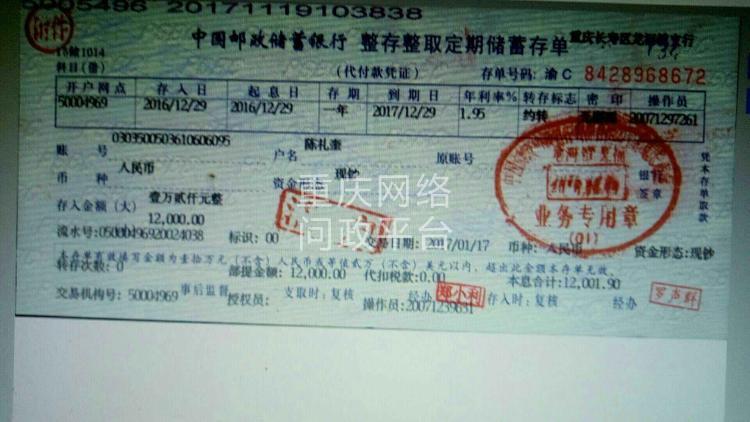 0005496 20171119103838
附件
中国邮政储蓄银行 整存整取定期储蓄存单
重庆长寿区龙
15储1014
科目(借)
(代付款凭证)
存单号码: 渝 C 8428968672
开户网点 存入日 起息日 存期 到期日 年利率% 转存标志 密印 操作员
50004969 2016/12/29 2016/12/29 一年 2017/12/29 1.95 约转 20071297261
0303500503610606095 陈礼奎
账号 户名 原账号
人民币 现钞
币种 资金形态:
银行签章
凭本存单取款
壹万贰仟元整
存入金额(大)
12,000.00
业务专用章
(01)
流水号:05000496920024038 标识: 00 交易日期: 2017/01/17 币种: 人民币 资金形态:现钞
本存单有效填写金额为壹拾万元(不含)人民币或等值贰万(不含)美元以内,超出此金额本存单无效。
转存次数: 0 部提金额: 12,000.00 代扣税款:0.00 本息合计: 12,001.90
交易机构号: 50004969 事后监督 授权员: 支取时: 复核 经办 郑小利 存入时: 复核 经办 罗声群
操作员:20071239631
重庆网络
问政平台